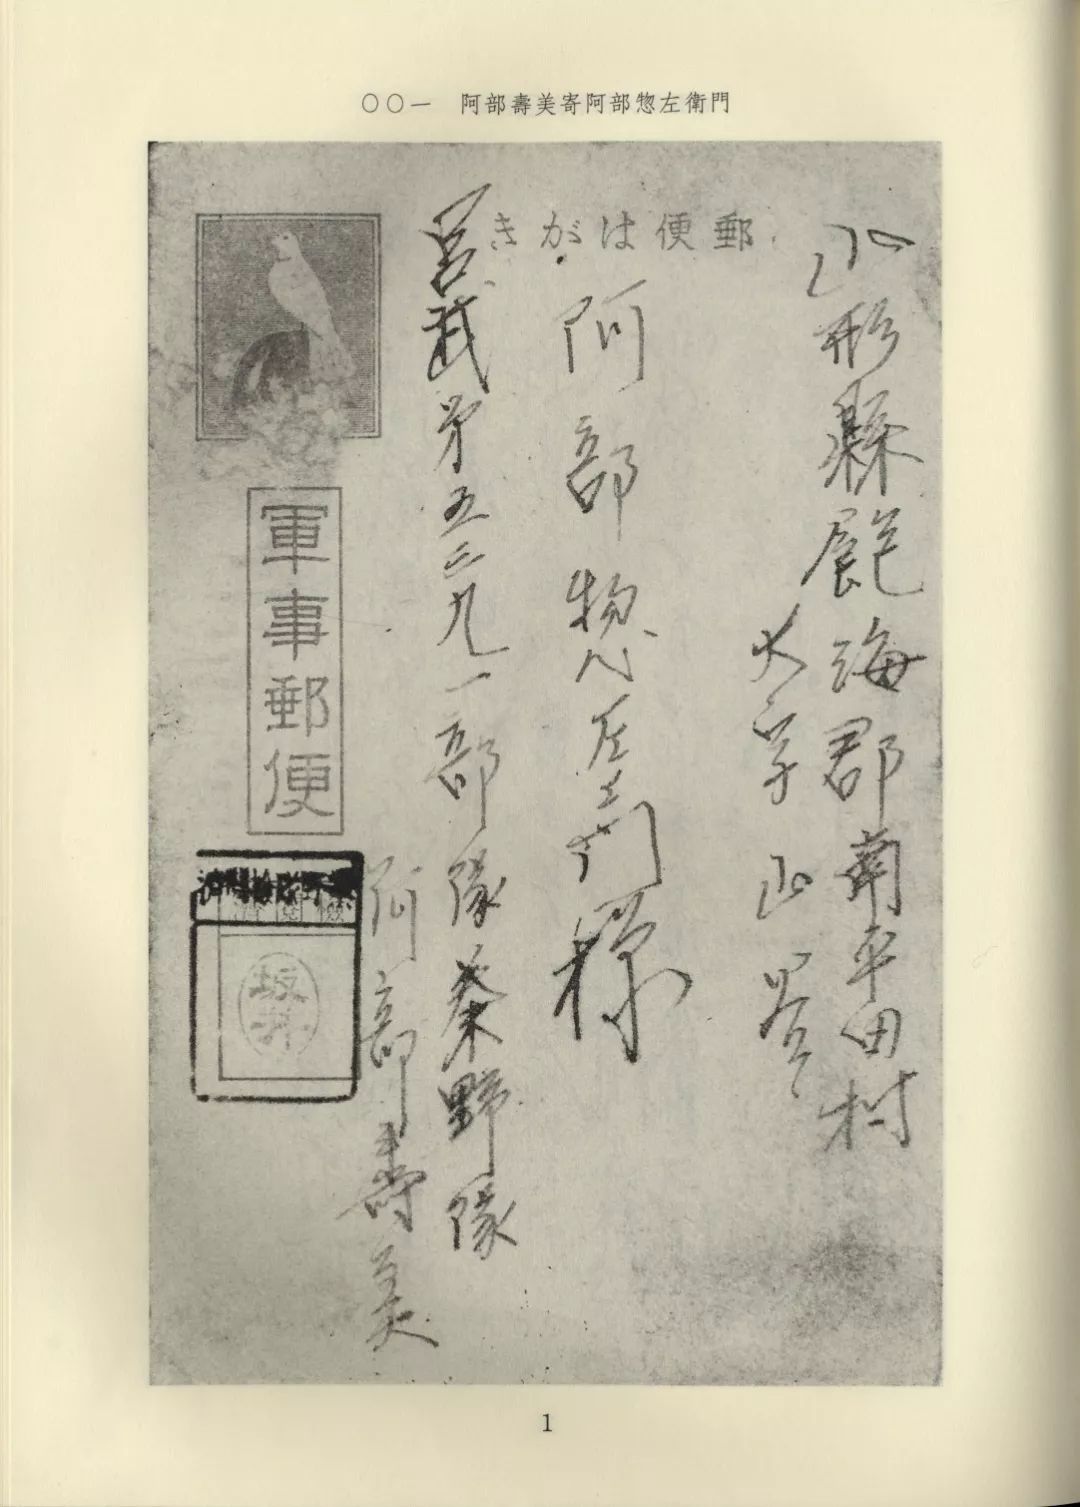 〇〇一　阿部壽美寄阿部惣左衛門
郵便はがき
山形縣飽海郡南平田村
大字山谷
阿部惣左衛門様
呂武第五三九一部隊秦野隊
阿部壽美
軍事郵便
坂井
1